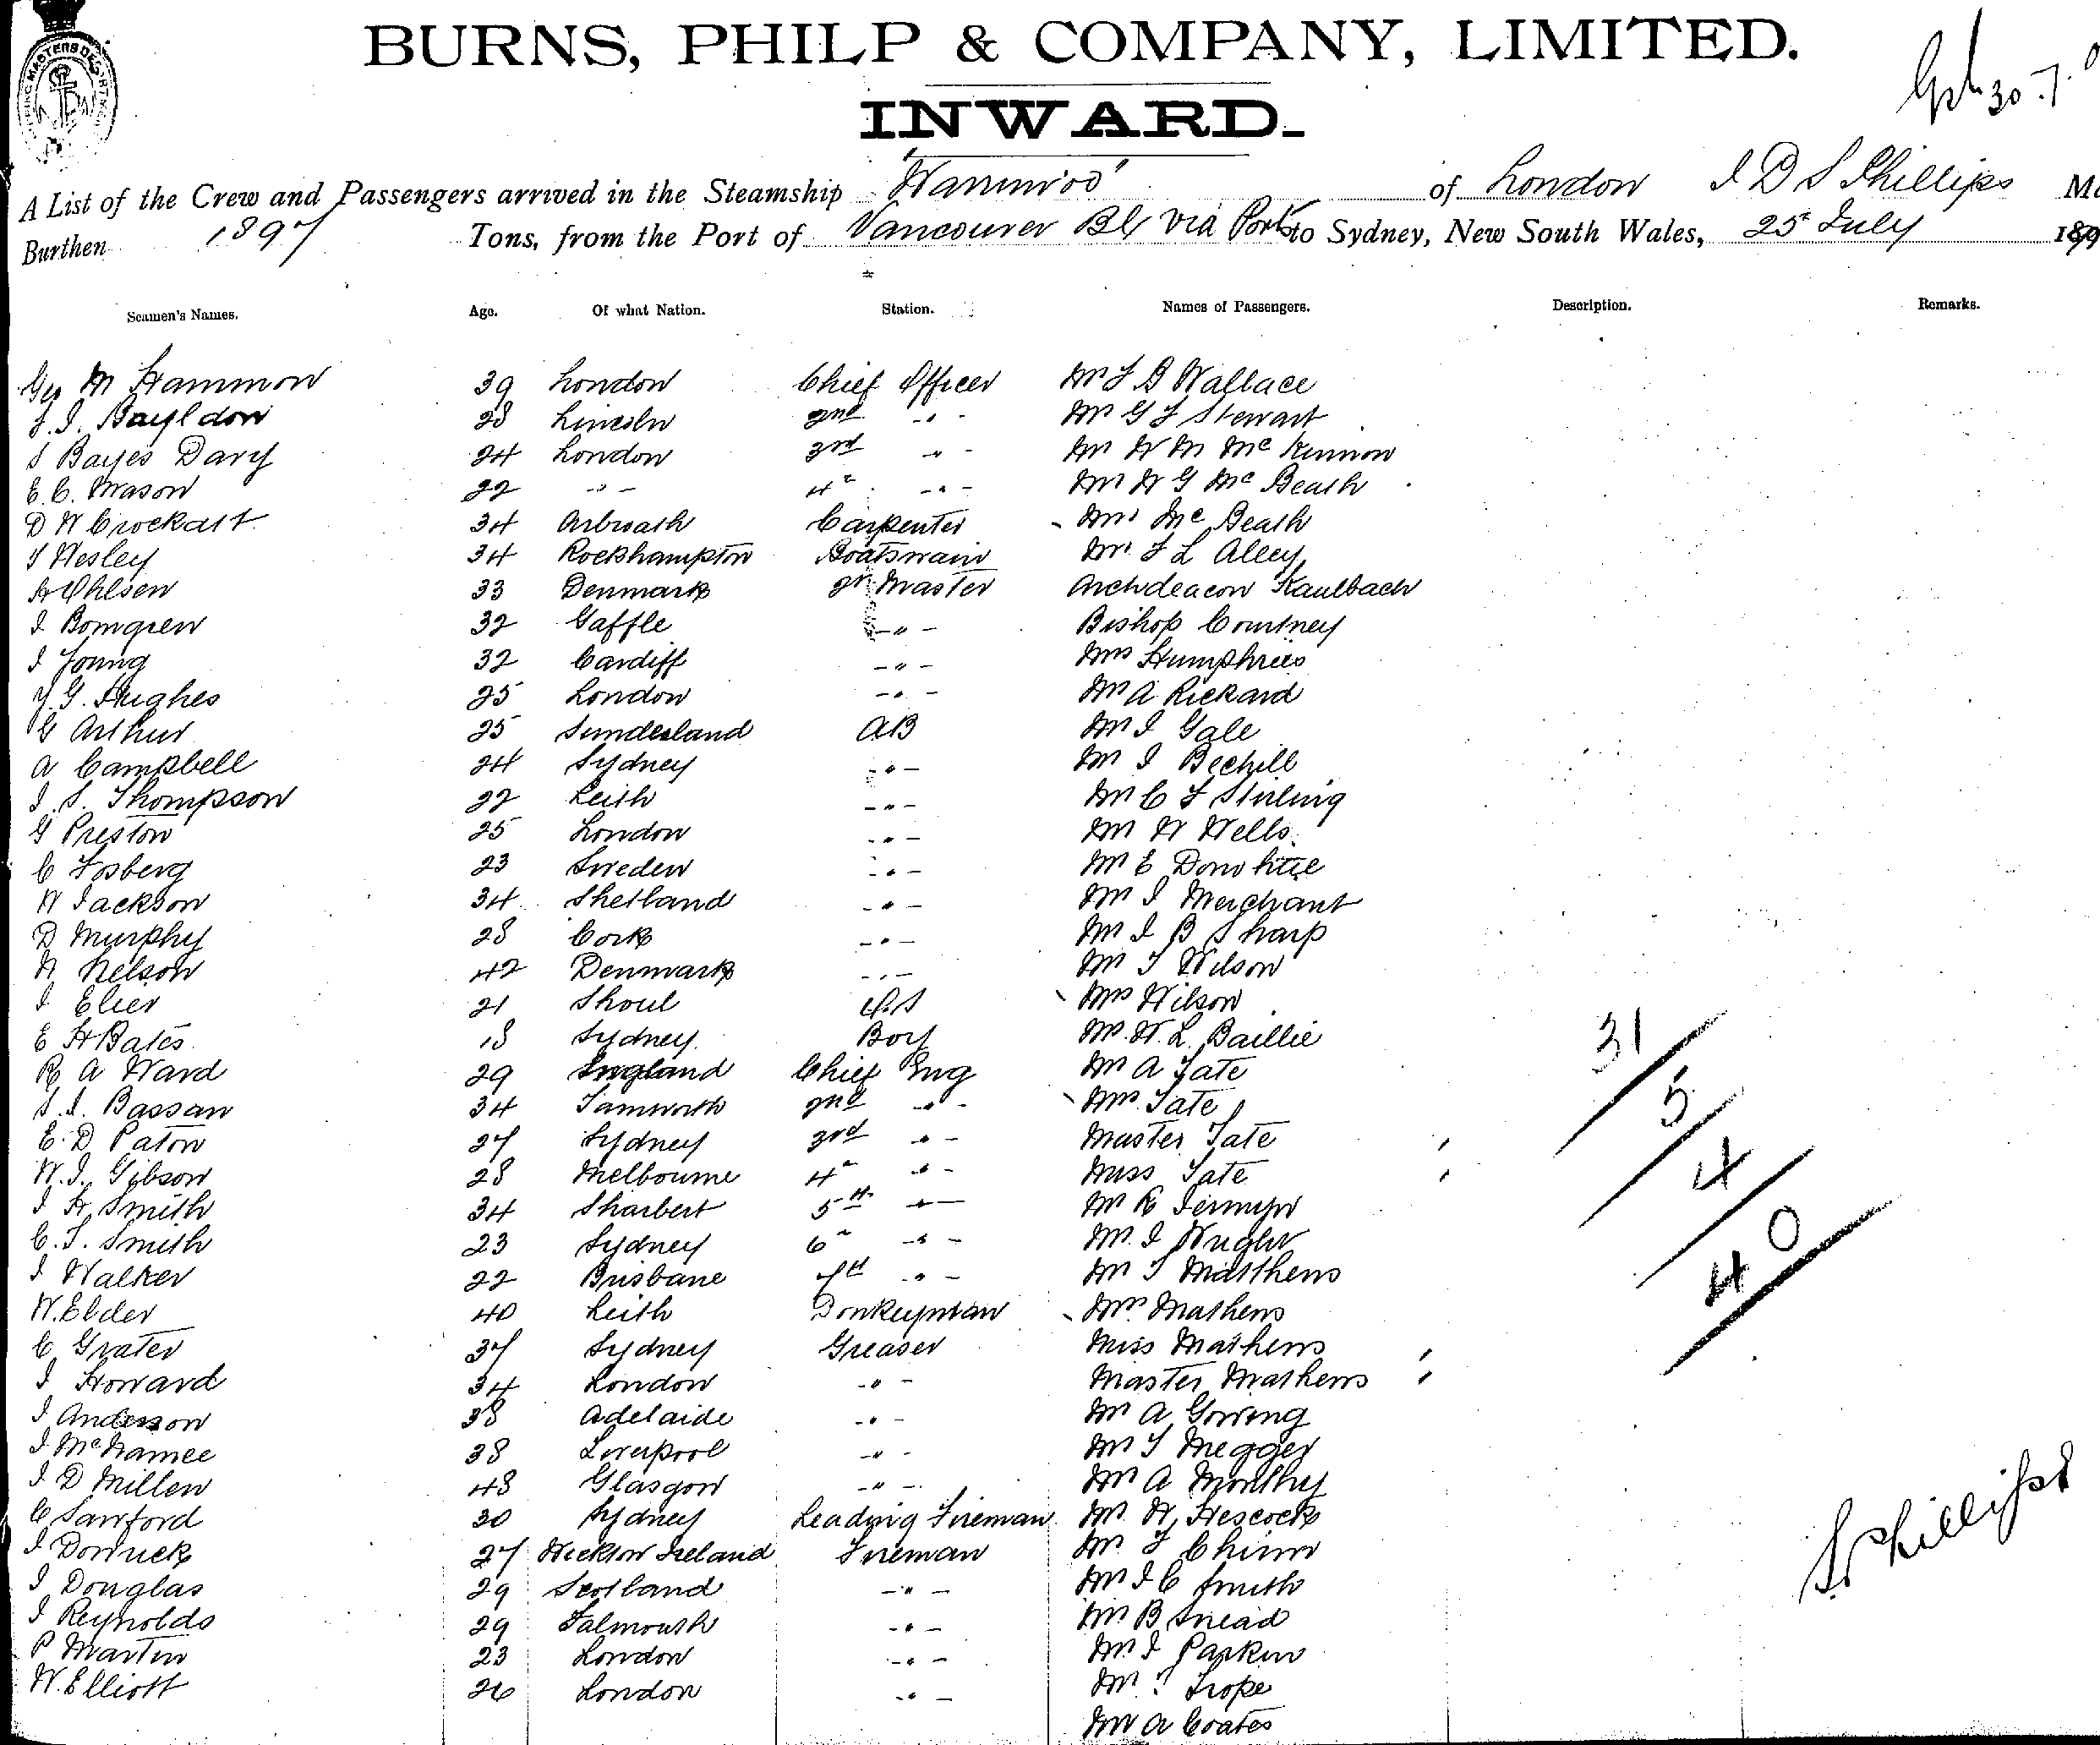 BURNS, PHILP & COMPANY, LIMITED.
INWARD.
A List of the Crew and Passengers arrived in the Steamship "Warrimoo" of London J D S Phillips
Burthen 1897 Tons, from the Port of Vancouver BC via Ports to Sydney, New South Wales, 25 July 189
Seamen's Names. Age. Of what Nation. Station. Names of Passengers. Description. Remarks.
Geo M Hammon 39 London Chief Officer Mr J B Wallace
J. J. Bayldon 28 Lincoln 2nd -"- Mr G F Stewart
S Bayes Davy 24 London 3rd -"- Mr W M McKinnon
E. C. Mason 22 -"- 4th -"- Mr W G McBeath
D W Crockatt 34 Arbroath Carpenter Mrs McBeath
T Wesley 34 Rockhampton Boatswain Mr F L Alley
A Ohlsen 33 Denmark Qr Master Archdeacon Kaulbach
J Bomgren 32 Gaffle -"- Bishop Courtney
J Young 32 Cardiff -"- Mrs Humphries
T. G. Hughes 25 London -"- Mr A Rickard
G Arthur 25 Sunderland AB Mr J Gale
A Campbell 24 Sydney -"- Mr J Bechill
J. S. Thompson 22 Leith -"- Mr C F Stirling
G Preston 25 London -"- Mr W Wells
C Fosberg 23 Sweden -"- Mr E
W Jackson 34 Shetland -"- Mr J Merchant
D Murphy 28 Cork -"- Mr J B Sharp
N Nelson 42 Denmark -"- Mr T Wilson
J Elier 21 Shoul O.S Mrs Wilson
E H Bates 18 Sydney Boy Mr. W. L. Baillie
R A Ward 29 England Chief Eng Mr A Tate
S. J. Bassan 34 Tamworth 2nd -"- Mrs Tate
E. D Paton 27 Sydney 3rd -"- Master Tate
W. J. Gibson 28 Melbourne 4th -"- Miss Tate
J H Smith 34 Sharbert 5th -"- Mr R Jermyn
C. T. Smith 23 Sydney 6th -"- Mr. J Wright
J Walker 22 Brisbane 7th -"- Mr T Matthews
W. Elder 40 Leith Donkeyman Mrs Mathews
C Grater 37 Sydney Greaser Miss Mathews
J Howard 34 London -"- Master Mathews
J Anderson 38 Adelaide -"- Mr A Gowing
J McNamee 38 Liverpool -"- Mr T Megger
J D Millen 48 Glasgow -"- Mr A
C Sawford 30 Sydney Leading Fireman Mr. H Hescock
J Dorrick 27 Ireland Fireman Mr. F Chinn
J Douglas 29 Scotland -"- Mr J C Smith
J Reynolds 29 Falmouth -"- Mr. B Snead
P Martin 23 London -"- Mr. J Parkin
W. Elliott 26 London -"- Mr. Trope
Mr A Coates
30.7.
31/
5/
4/
40/
Phillips